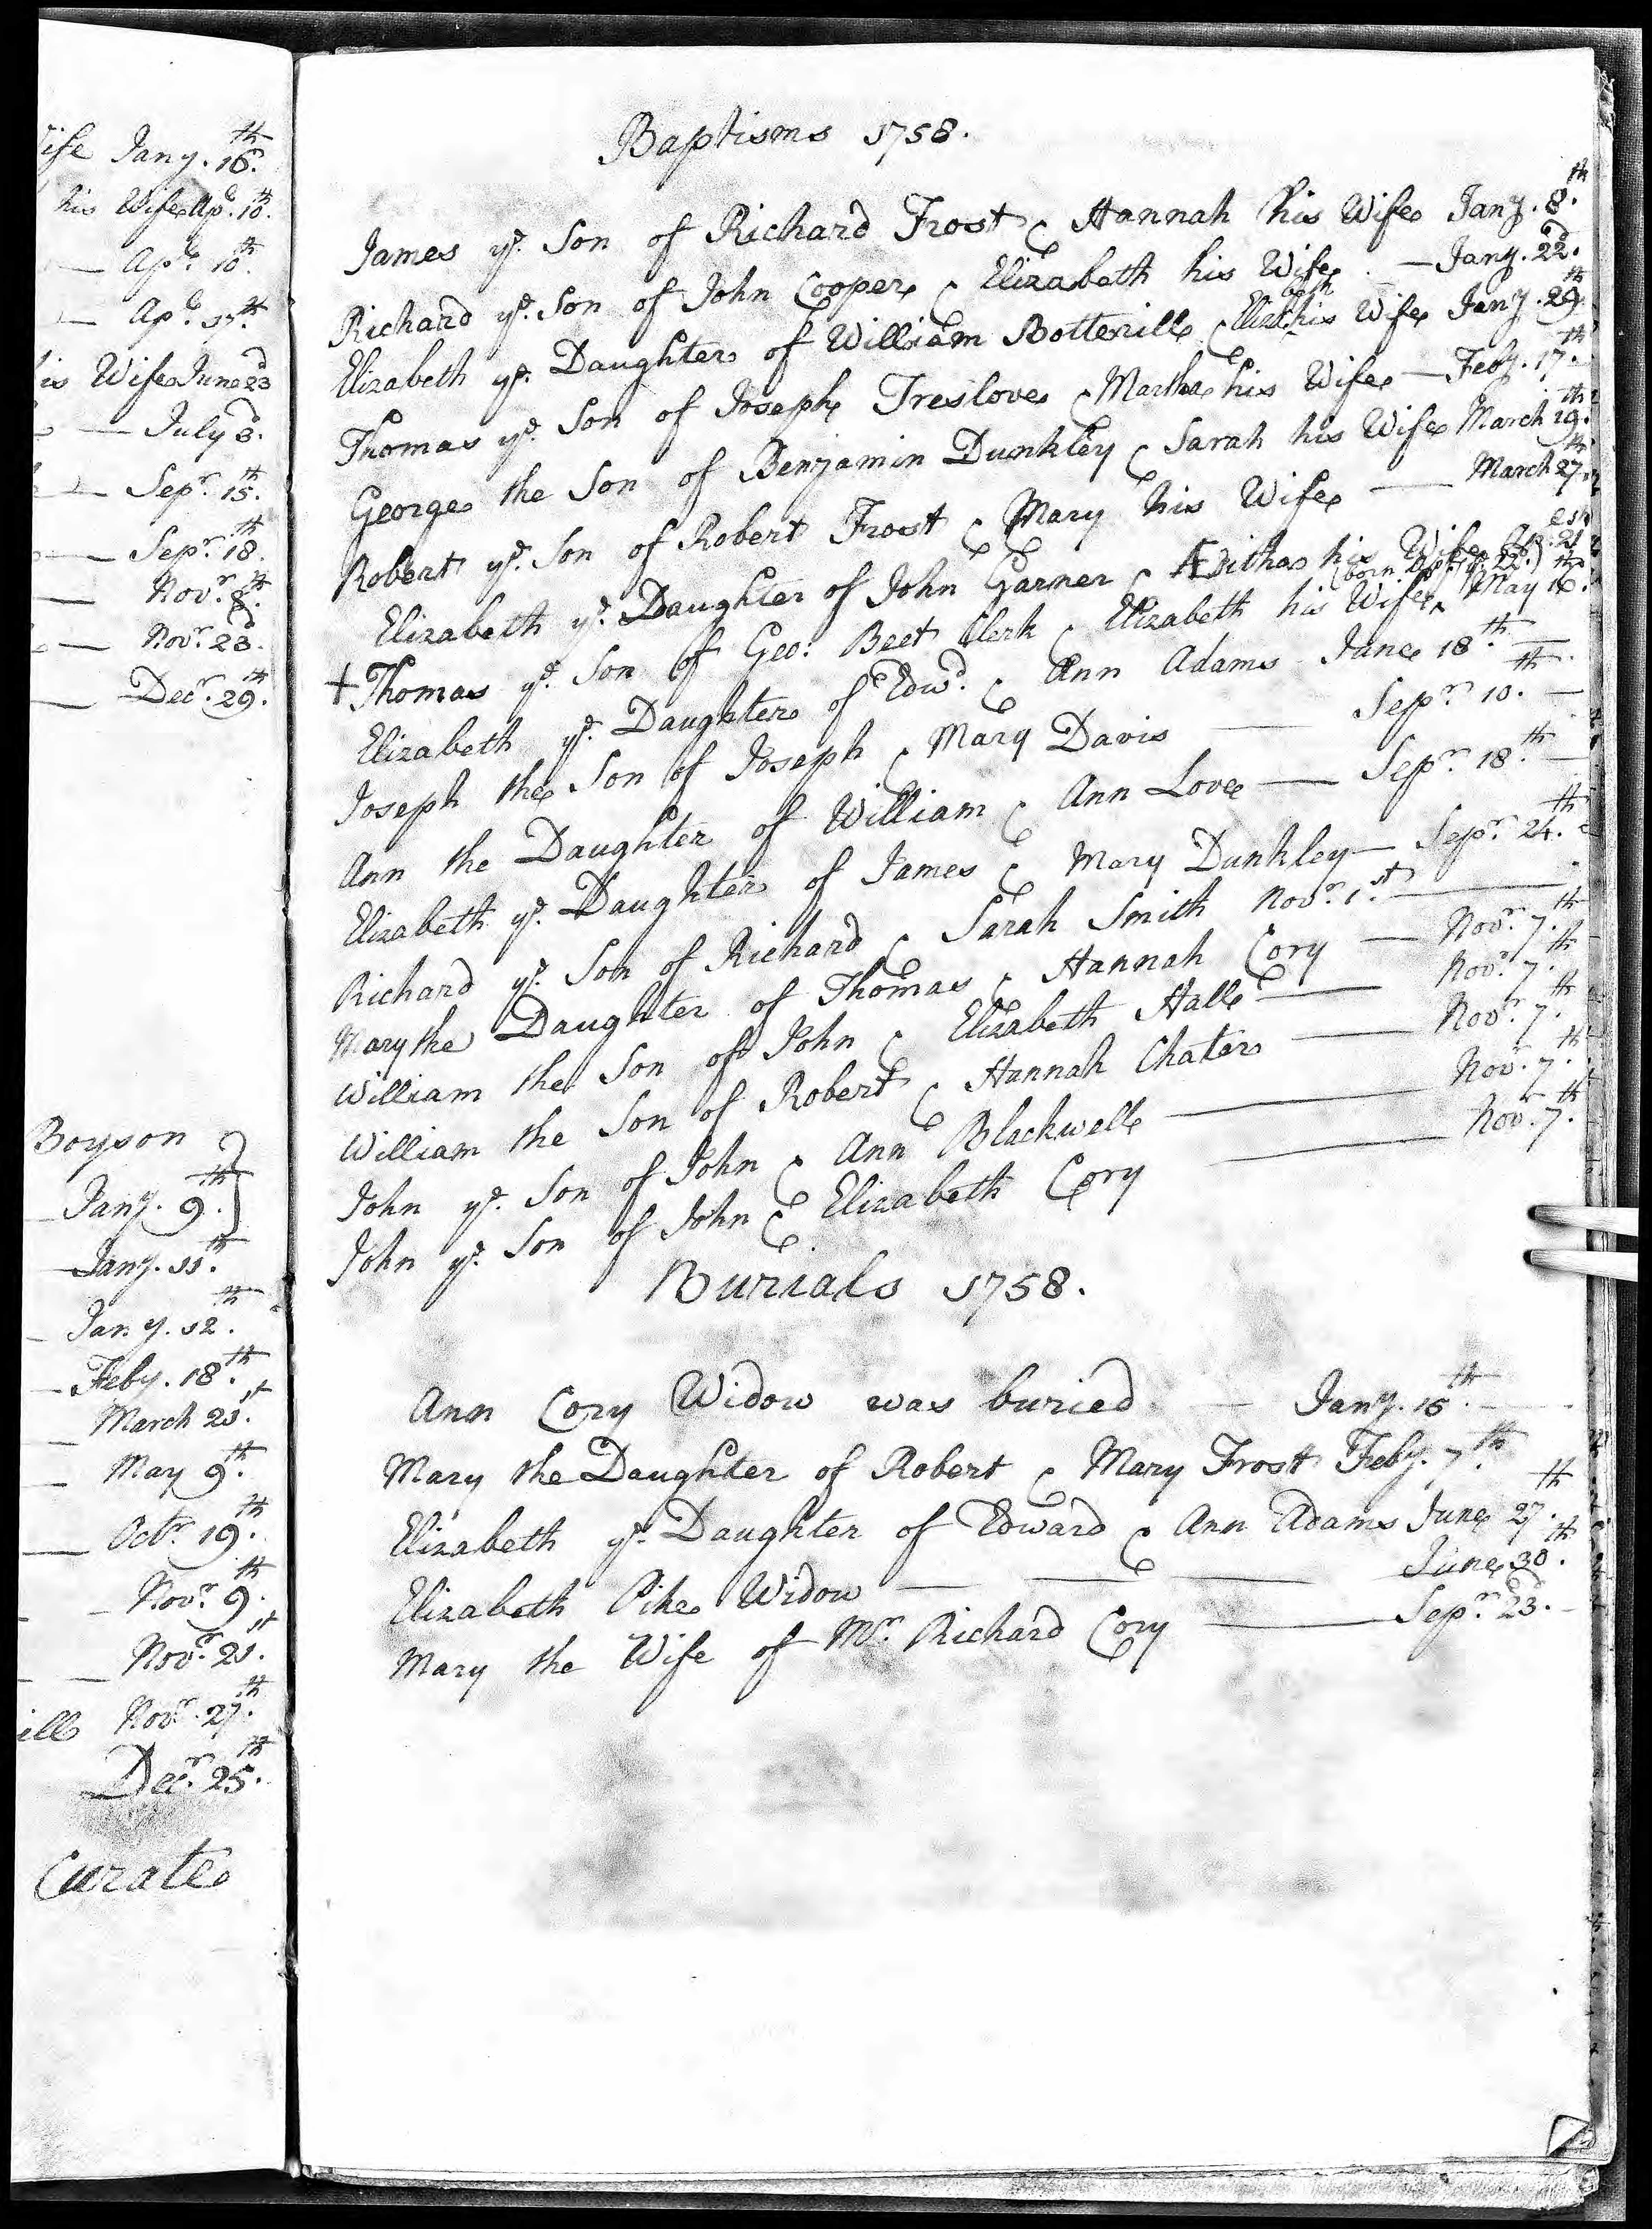 ife Jany. 16th.
his Wife Apl. 10th.
— Apl. 10th.
— Apl. 17th.
is Wife June 23d
— July 3d.
— Sepr. 15th.
— Sepr. 18th.
— Novr. 8th.
— Novr. 23d.
— Decr. 29th.
Boyson
Jany. 9th.
Jany. 11th.
Jany. 12th.
Feby. 18th.
March 21st.
May 9th.
Octr. 19th.
Novr. 9th.
Novr. 21st.
ill Novr. 27th.
Decr. 25th.
Curate
Baptisms 1758.
James ye. Son of Richard Frost & Hannah his Wife Jany. 8th.
Richard ye. Son of John Cooper & Elizabeth his Wife — Jany. 22d.
Elizabeth ye. Daughter of William Botterill & Elizabeth his Wife Jany. 29th.
Thomas ye. Son of Joseph Treslove & Martha his Wife — Feby. 17th.
George the Son of Benjamin Dunkley & Sarah his Wife March 19th.
Robert ye. Son of Robert Frost & Mary his Wife — March 27th.
Elizabeth ye. Daughter of John Garner & his Wife 21st
+ Thomas ye. Son of Geo: Beet Clerk & Elizabeth his Wife (born 22d.) May 16th.
Elizabeth ye. Daughter of Edwd. & Ann Adams June 18th. —
Joseph the Son of Joseph & Mary Davis — Sepr. 10th. —
Ann the Daughter of William & Ann Love — Sepr. 18th. —
Elizabeth ye. Daughter of James & Mary Dunkley — Sepr. 24th.
Richard ye. Son of Richard & Sarah Smith Novr. 1st. —
Mary the Daughter of Thomas & Hannah Cory — Novr. 7th.
William the Son of John & Elizabeth Hall — Novr. 7th.
William the Son of Robert & Hannah Chater — Novr. 7th.
John ye. Son of John & Ann Blackwell — Novr. 7th.
John ye. Son of John & Elizabeth Cory — Novr. 7th.
Burials 1758.
Ann Cory Widow was buried — Jany. 15th. —
Mary the Daughter of Robert & Mary Frost Feby. 7th.
Elizabeth ye. Daughter of Edward & Ann Adams June 27th.
Elizabeth Pike Widow — — — June 30th.
Mary the Wife of Mr. Richard Cory — Sepr. 23d. —